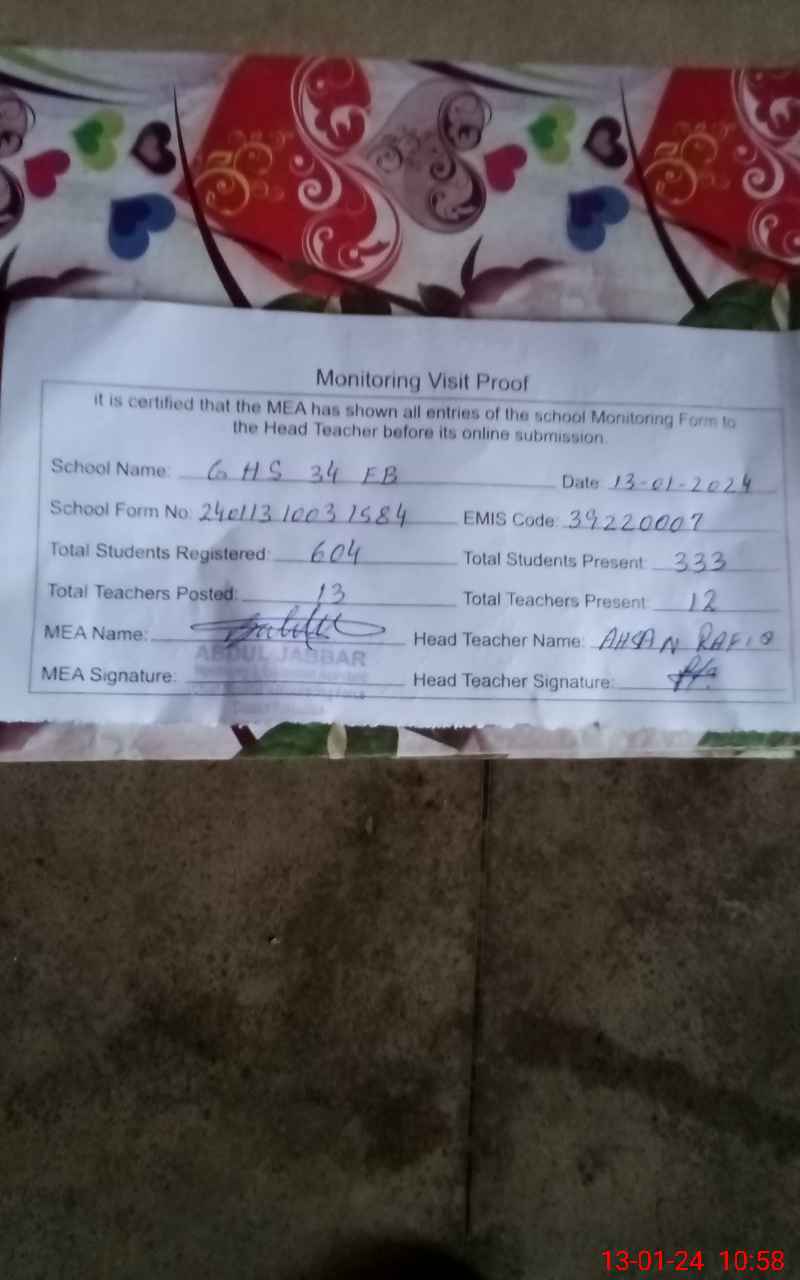 Monitoring Visit Proof
it is certified that the MEA has shown all entries of the school Monitoring Form to
the Head Teacher before its online submission.
School Name: GHS 34 EB Date 13-01-2024
School Form No: 24011310031584 EMIS Code: 39220007
Total Students Registered: 604 Total Students Present: 333
Total Teachers Posted: 13 Total Teachers Present: 12
MEA Name: Head Teacher Name: AHSAN RAFIQ
ABDUL JABBAR
MEA Signature: Head Teacher Signature:
13-01-24 10:58